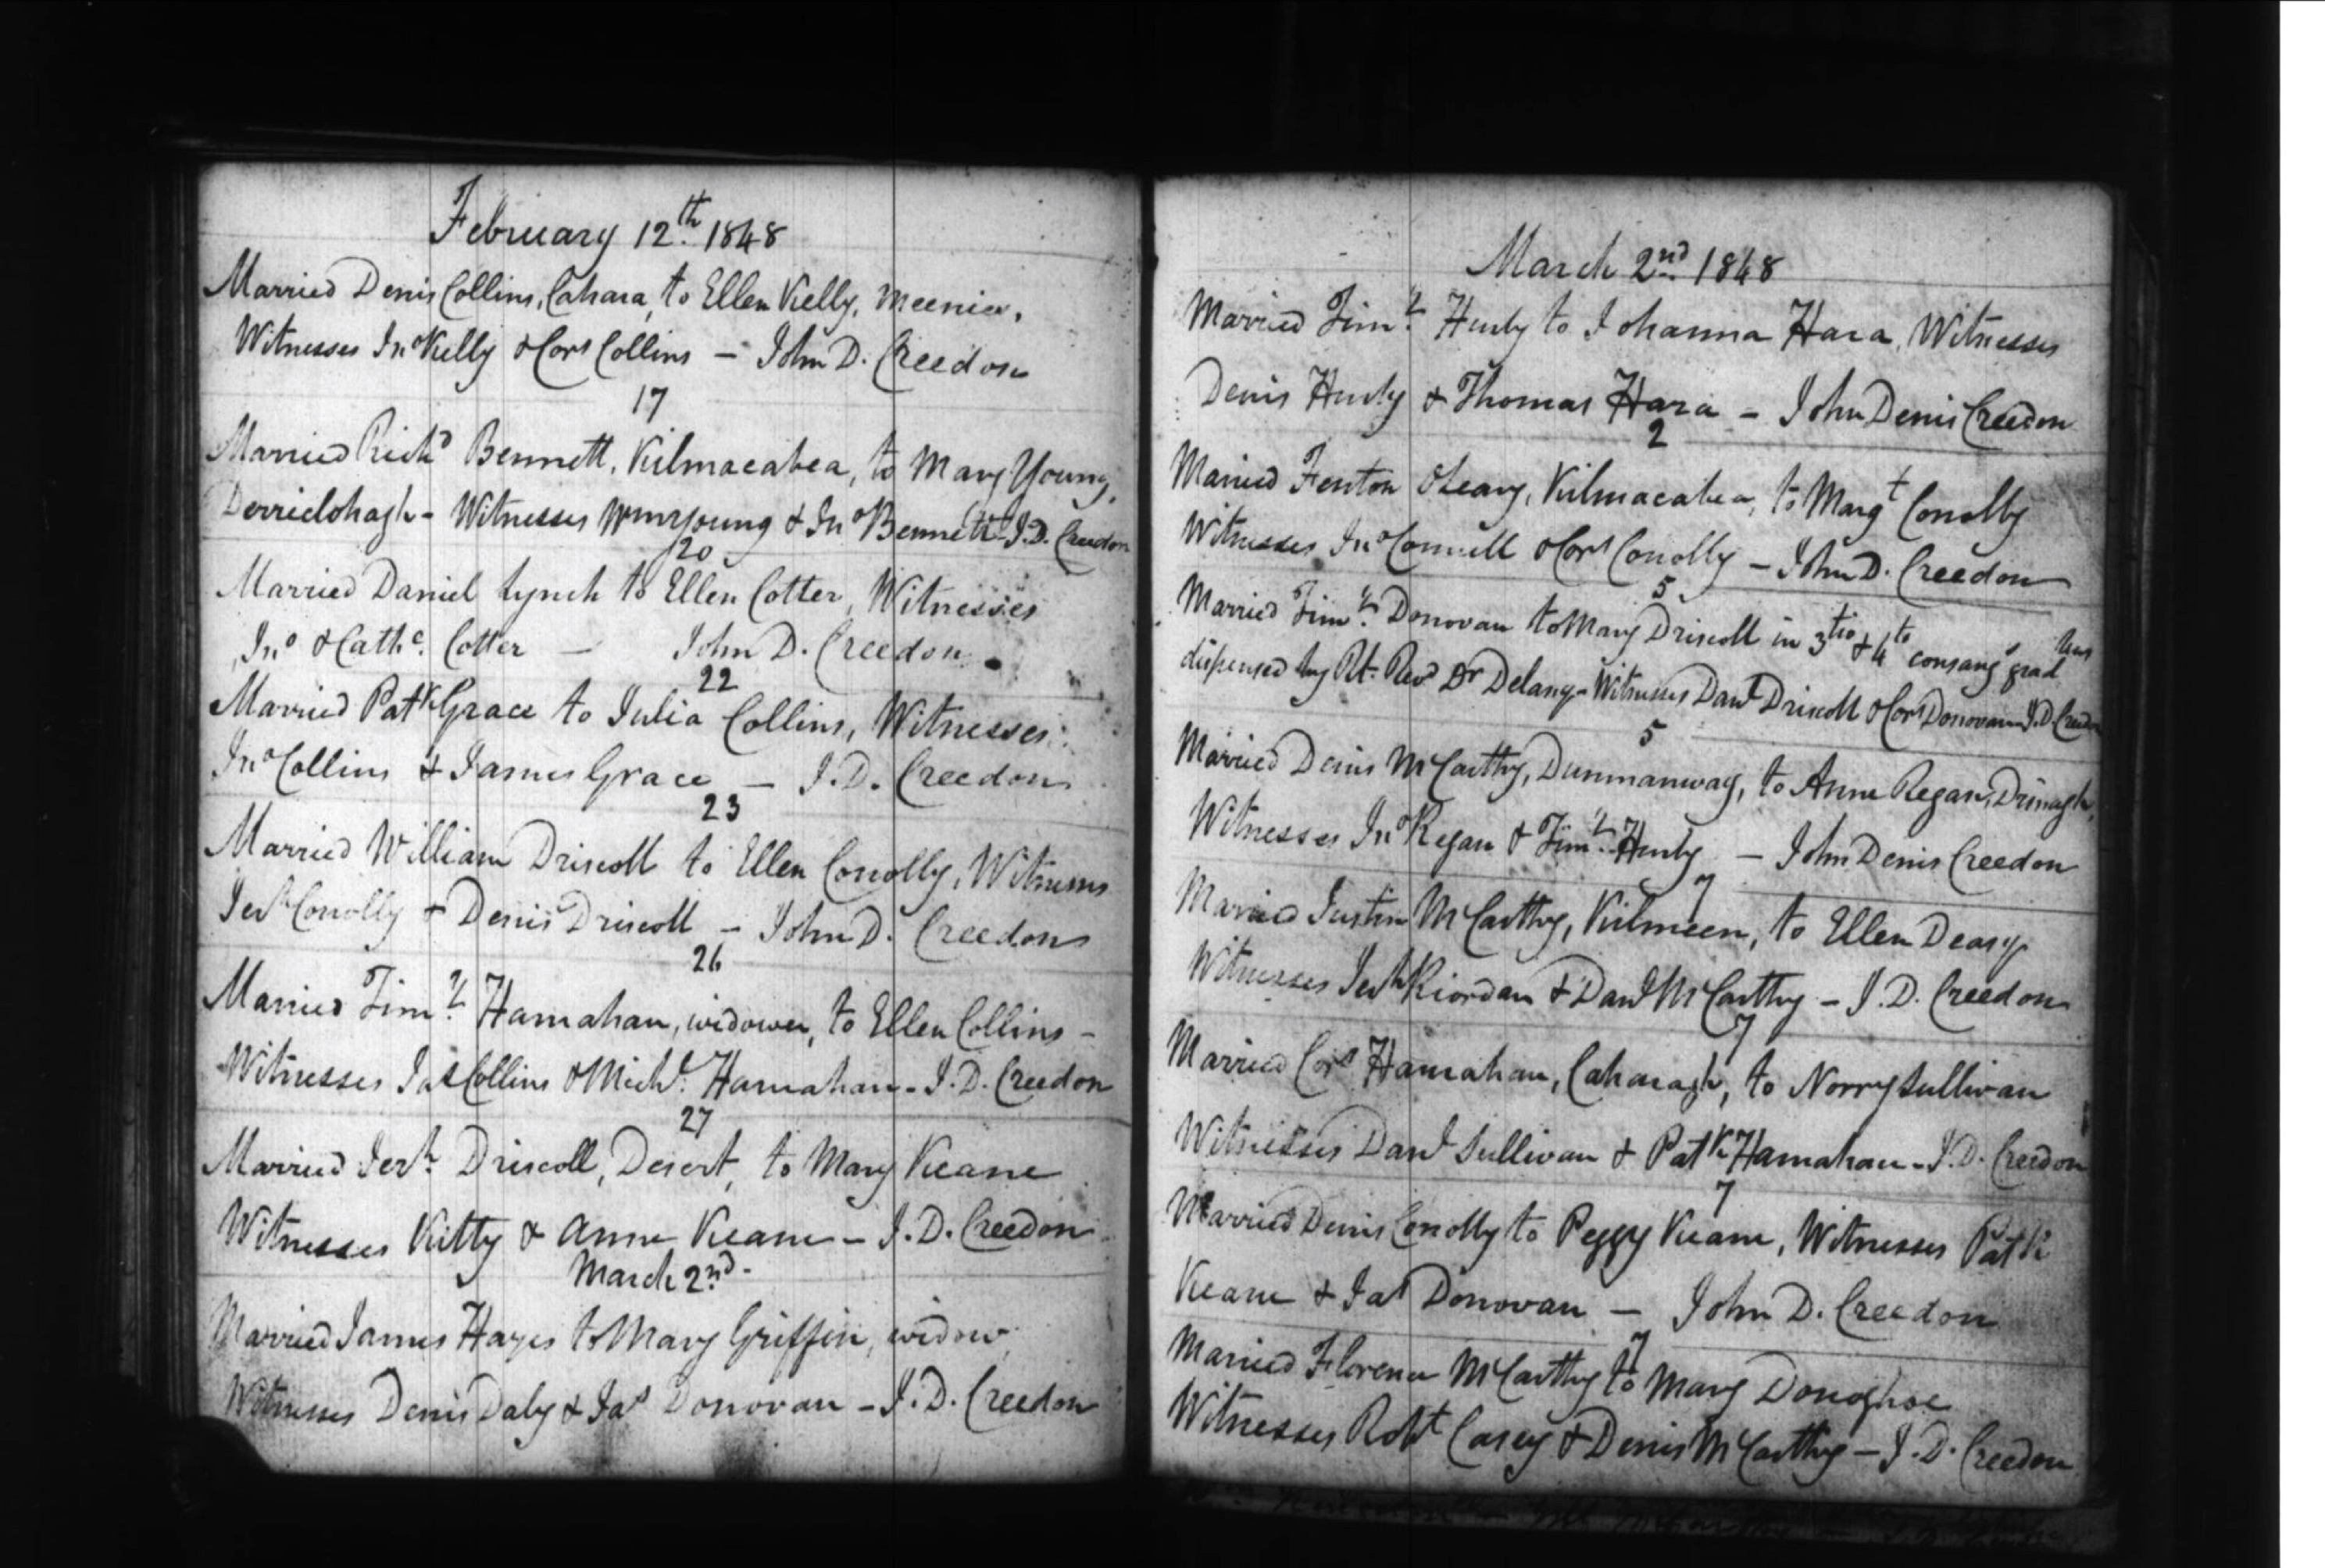 February 12th 1848
Married Denis Collins, Cahara, to Ellen Kelly, Meenies.
Witnesses Jno Kelly & Cors Collins – John D. Creedon
17
Married Richd Bennett, Kilmacabea, to Mary Young,
Derriclohagh – Witnesses Wm Young & Jno Bennett – J.D. Creedon
20
Married Daniel Lynch to Ellen Cotter, Witnesses
Jno & Cathe. Cotter – John D. Creedon
22
Married Patk Grace to Julia Collins, Witnesses
Jno Collins & James Grace – J.D. Creedon
23
Married William Driscoll to Ellen Conolly, Witnesses
Jerh Conolly & Denis Driscoll – John D. Creedon
26
Married Timy. Hannahan, widower, to Ellen Collins –
Witnesses Jas Collins & Michl. Hannahan – J.D. Creedon
27
Married Jerh. Driscoll, Desert, to Mary Keane
Witnesses Kitty & Anne Keane – J.D. Creedon
March 2nd.
Married James Hayes to Mary Griffin, widow,
Witnesses Denis Daly & Jas Donovan – J.D. Creedon
March 2nd 1848
Married Timy. Hurly to Johanna Hara, Witnesses
Denis Hurly & Thomas Hara – John Denis Creedon
2
Married Fenton OLeary, Kilmacabea, to Margt Conolly
Witnesses Jno Connell & Cors Conolly – John D. Creedon
5
Married Timy. Donovan to Mary Driscoll in 3tio & 4to consangs grad
dispensed by Rt. Revd Dr Delany – Witnesses Danl Driscoll & Cors Donovan J.D. Creedon
5
Married Denis McCarthy, Dunmanway, to Anne Regan, Drinagh,
Witnesses Jno Regan & Timy. Hurly – John Denis Creedon
7
Married Justin McCarthy, Kilmeen, to Ellen Deasy
Witnesses Jerh Riordan & Danl McCarthy – J.D. Creedon
7
Married Cors Hannahan, Caharagh, to Norry Sullivan
Witnesses Danl Sullivan & Patk Hannahan – J.D. Creedon
7
Married Denis Conolly to Peggy Keane, Witnesses Patk
Keane & Jas Donovan – John D. Creedon
7
Married Florence McCarthy to Mary Donoghoe
Witnesses Robt Casey & Denis McCarthy – J.D. Creedon